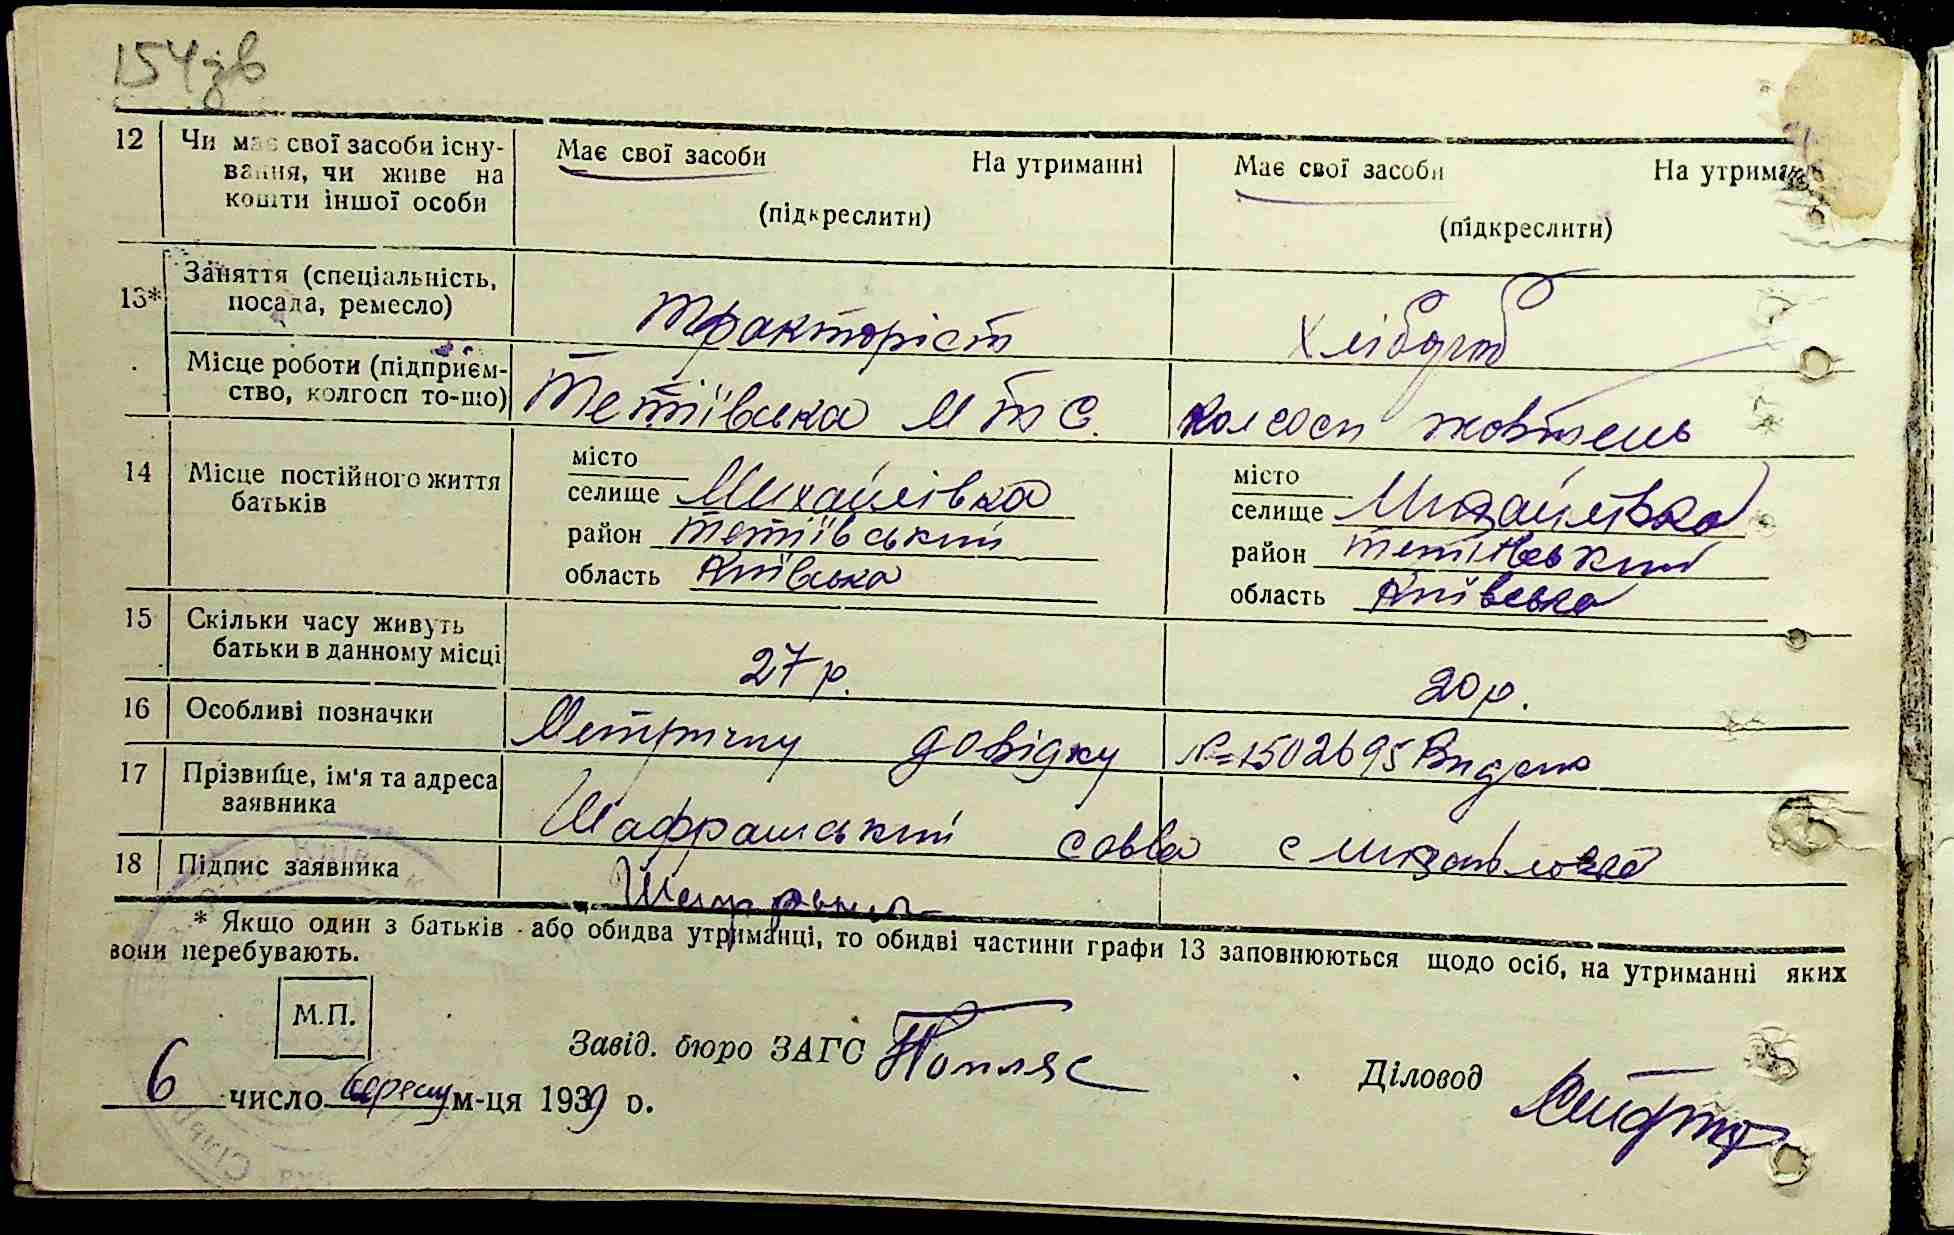 154зв
12 Чи має свої засоби існу- Має свої засоби На утриманні Має свої засоби На утриман
вання, чи живе на
кошти іншої особи (підкреслити) (підкреслити)
13* Заняття (спеціальність,
посада, ремесло) Тракторіст Хлібороб
Місце роботи (підприєм-
ство, колгосп то-що) Тетіївська МТС. Колгосп жовтень
14 Місце постійного життя
батьків
місто місто
селище Михайлівка селище Михайлівка
район Тетіївський район Тетіївський
область Київська область Київська
15 Скільки часу живуть
батьки в данному місці 27 р. 20 р.
16 Особливі позначки Метричну довідку №1502695 Видано
17 Прізвище, ім'я та адреса
заявника Шафранський Савва с Михайловка
18 Підпис заявника
* Якщо один з батьків або обидва утриманці, то обидві частини графи 13 заповнюються щодо осіб, на утриманні яких
вони перебувають.
М.П.
Завід. бюро ЗАГС Діловод
6 число березня м-ця 1939 р.